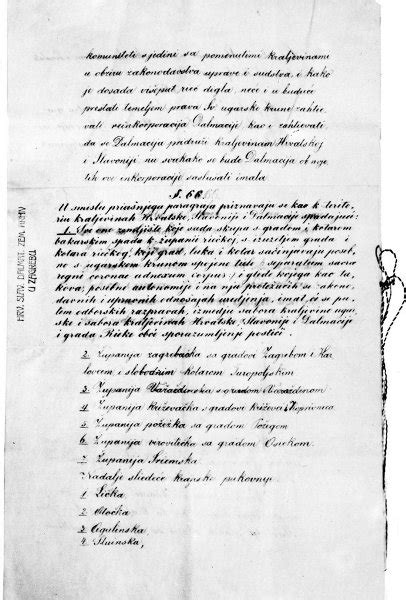 komunšteti sjedini sa pomenutimi kraljevinami
u obziru zakonodavstva uprave i sudstva i kako
je dosada višeput riec digla neće i u buduće
prestati temeljem prava Sv ugarske krune zahtie
vati reinkorporacija Dalmacije kao i zahtievati
da se Dalmacija padruži kraljevinam Hrvatskoj
i Slavoniji nu svakako se bude Dalmacija ob uvje
tih ove inkorporacije saslušati imala
§. 66
U smislu priašnjega paragrafa priznavaju se kao k terito
riu kraljevinah Hrvatske, Slavonije i Dalmacije spadajući:
1. Sve ono zemljište koje sada skupa s gradom i kotarom
bakarskim spada k županii riečkoj, s izuzetjem grada i
kotara riečkog, koji grad, luka i kotar sačinjavaju poseb,
no s ugarskom krunom spojeno tielo (separatum sacrae
regni coronae adnexum corpus) i glede kojega kao ta,
kova; posebne autonomije i na nju protežućih se zakono,
davnih i upravnih odnosajah uredjenja, imat će se pu,
tem odborskih razpravah, izmedju sabora kraljevine ugar,
ske i sabora kraljevinah Hrvatske, Slavonije i Dalmacije
i grada Rieke obće sporazumljenje postići.
2 Županija zagrebačka sa gradova Zagrebom i Kar
lovcem i slobodnim kotarom turopoljskim
3 Županija Varaždinska s gradom Varaždinom
4 Županija Križevačka s gradove Križevci i Koprivnica
5 Županija požežka sa gradom Požegom
6 Županija virovitička sa gradom Osiekom
7 Županija Sriemska
Nadalje sliedeće krajiške pukovnije
1 Lička
2 Otočka
3 Ogulinska
4 Sluinska,
HRV. SLAV. DALMAT. ZEM. ARHIV
U ZAGREBU